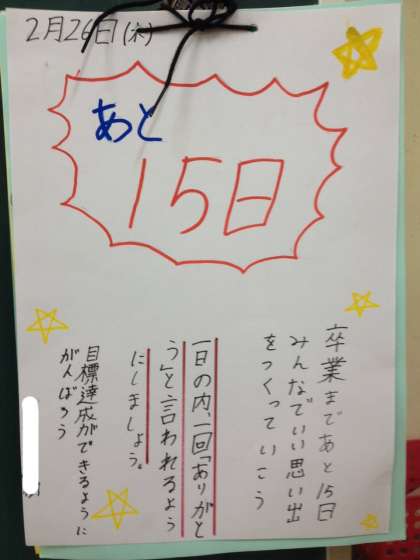 2月26日(木)
あと
15日
卒業まであと15日
みんなでいい思い出
をつくっていこう
一日の内、一回「ありがと
う」と言われるよう
にしましょう。
目標達成ができるように
がんばろう